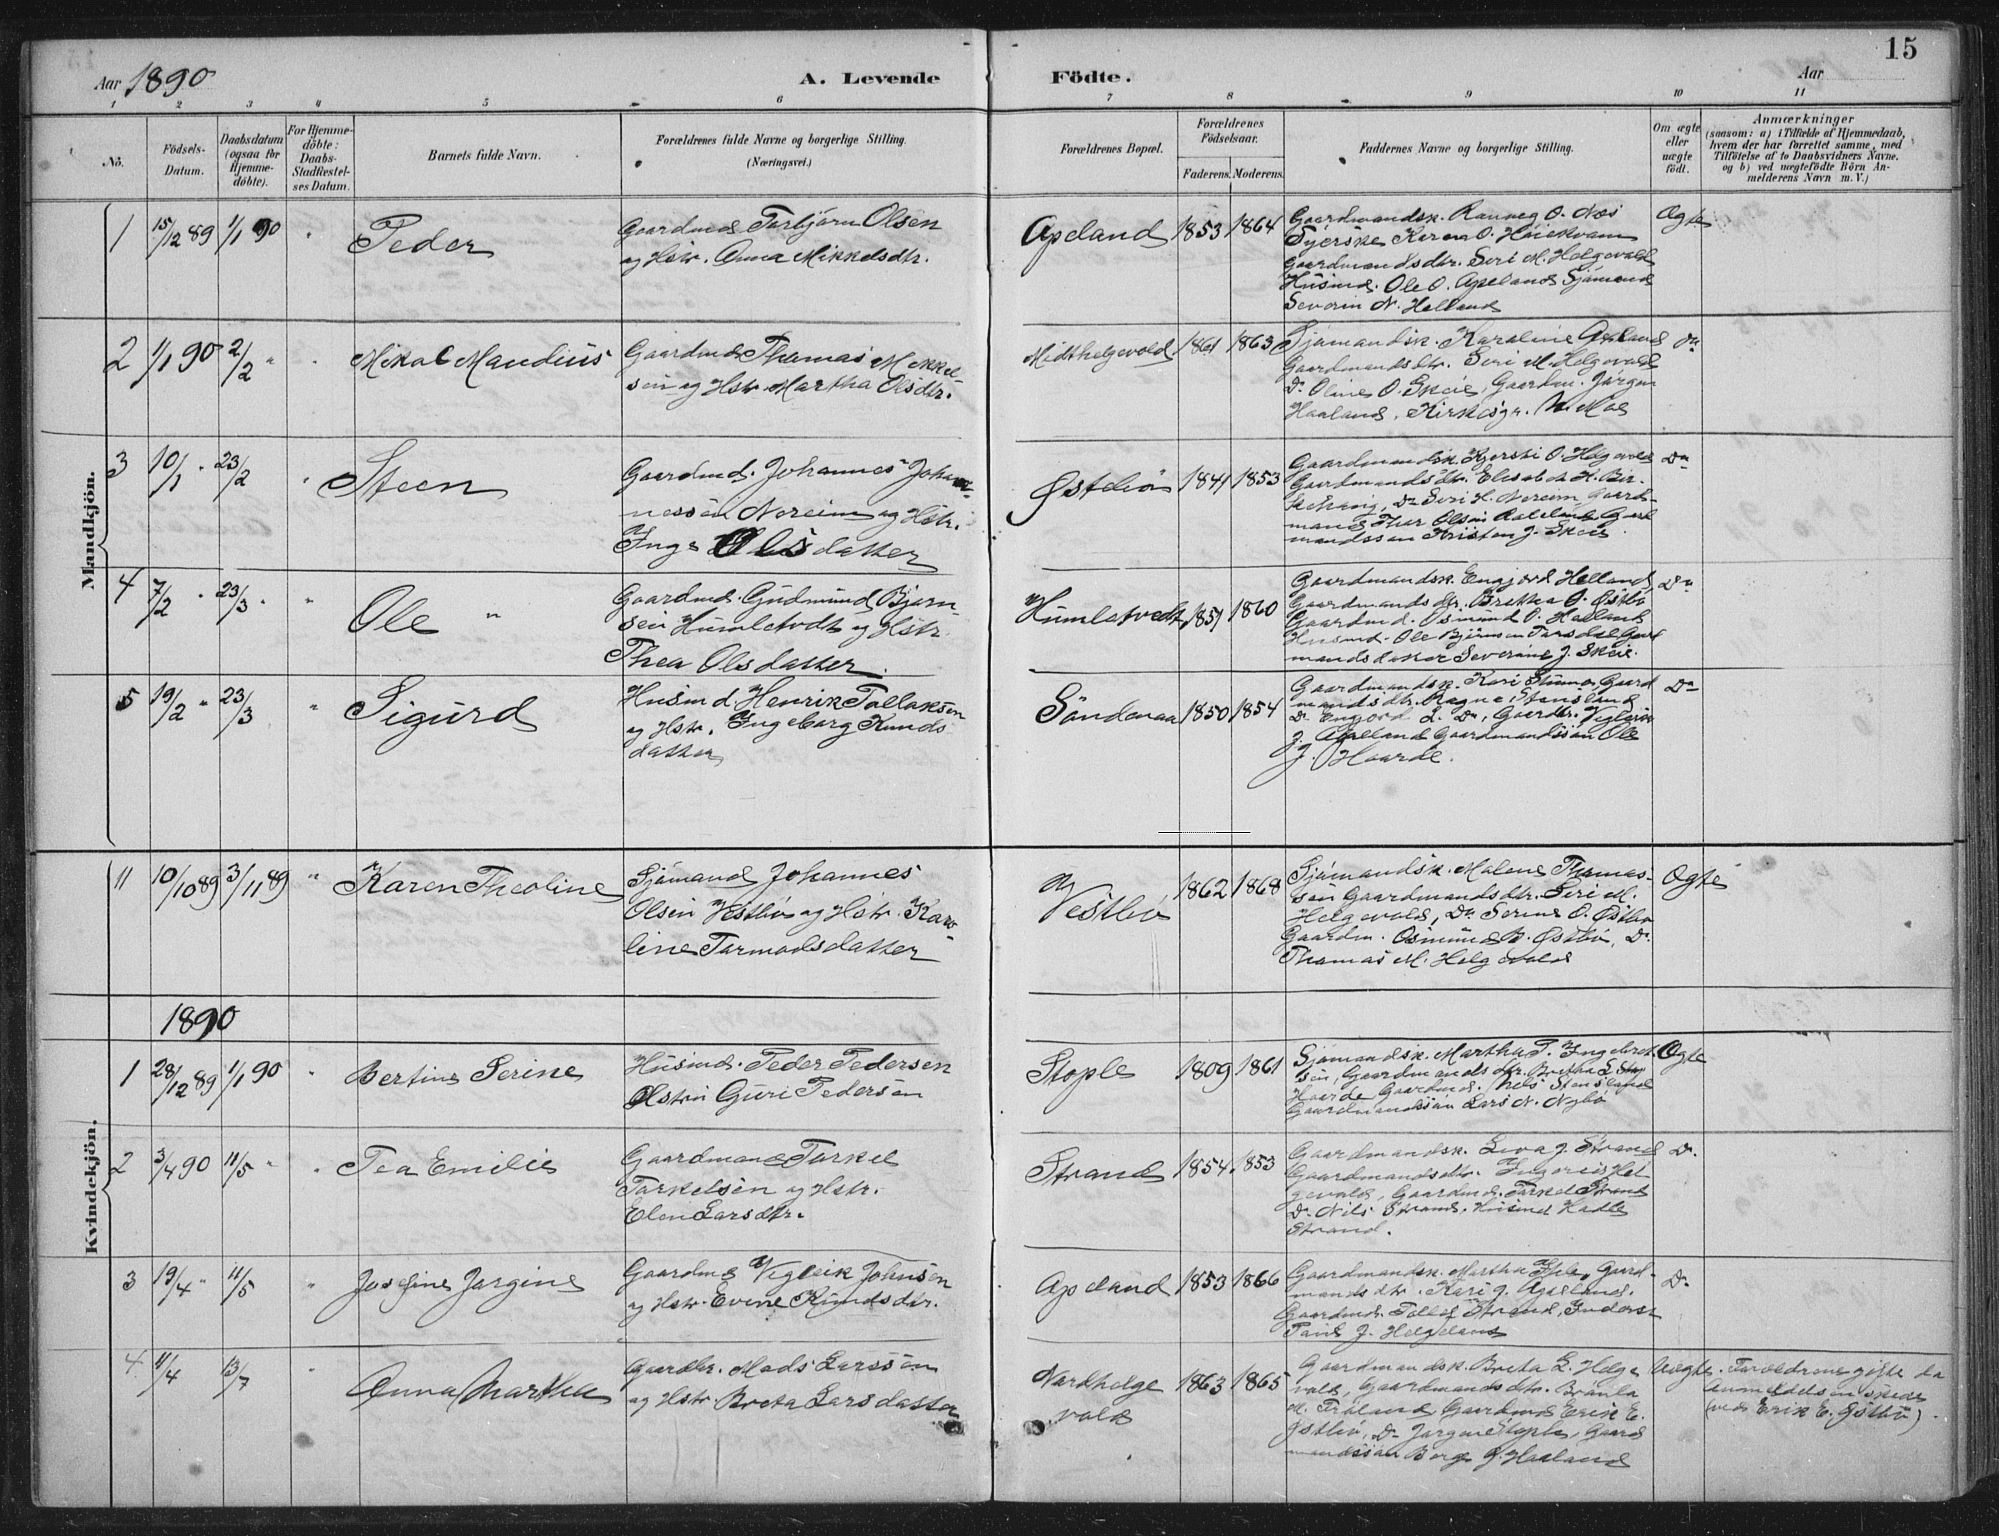 15
Aar 1890
A. Levende Födte.
Aar
1 2 3 4 5 6 7 8 9 10 11
No.
Födsels-Datum.
Daabsdatum (ogsaa for Hjemme-döbte).
For Hjemme-döbte: Daabs-Stadfæstel-ses Datum.
Barnets fulde Navn.
Forældrenes fulde Navne og borgerlige Stilling. (Næringsvei.)
Forældrenes Bopæl.
Forældrenes Födselsaar.
Faderens. Moderens.
Faddernes Navne og borgerlige Stilling.
Om ægte eller uægte födt.
Anmærkninger
(saasom: a) i Tilfælde af Hjemmedaab,
hvem der har forrettet samme, med
Tilföielse af to Daabsvidners Navne,
og b) ved uægtefödte Börn An-
melderens Navn m. V.)
Mandkjön.
1 15/12 89 1/1 90 " Peder
Gaardmd Torbjörn Olsen
og Hstr. Anna Mikkelsdtr.
Apeland 1853 1864
Gaardmandsk. Ranveg O. Næs
Syerske Karen O. Høiekvam
Gaardmandsdtr. Seri M. Helgevold
Husmd. Ole O. Apeland Sjömand
Severin N. Helland
Ægte
2 1/1 90 2/2 " " Mikal Mandius
Gaardmd Thomas Mikkel-
sen og Hstr. Martha Olsdtr.
Midthelgevold 1861 1863
Sjömandsk. Karoline Apeland
Gaardmandsdtr. Seri M. Helgevold
Do Oline O. Skeie, Gaardm. Jörgen
Haaland, Kirkesgr. N. Moe
Do
3 10/1 " 23/2 " Steen
Gaardmd. Johannes Johan-
nessen Noreim og Hstr.
Inge Olsdatter
Østebø 1841 1853
Gaardmandsk. Kjersti O. Helgevold
Gaardmandsdtr. Elisabet H. Bir-
kehaug, Do Seri H. Noreim Gaard-
mand Thor Olsen Gaard
mandssøn Kristen J. Skeie
Do
4 7/2 " 23/3 " " Ole "
Gaardmd. Gudmund Björn-
sen Humletvedt og Hstr.
Thea Olsdatter.
Humletvedt 1851 1860
Gaardmandsk. Engjord Helland
Gaardmandsdtr. Bretha O. Østbø
Gaardmd. Osmund O. Helland
Husmd. Ole Björnsen Gaard
mandsdatter Severine J. Skeie.
Do
5 19/2 " 23/3 " Sigurd
Husmd. Henrik Tollaksen
og Hstr. Ingeborg Knuds
datter
Söndenaa 1850 1854
Gaardmandsk. Kari Gaard
mandsdtr. Ragne Stensland
Do Engjord L. Do, Gaardbr. Vigleik
J. Apeland Gaardmandssøn Ole
J. Haarde.
Do
11 10/10 89 3/11 89 " Karen Theoline
Sjömand Johannes
Olsen Vestbø og Hstr. Karo-
line Tormodsdatter
Vestbø 1862 1868
Sjömandsk. Malene Thomas-
sen Gaardmandsdtr. Seri M.
Helgevold, Do Serine O. Østbø
Gaardm. Osmund B. Østbø, Do
Thomas M. Helgevold
Ægte
Kvindekjön.
1890
1 28/12 89 1/1 90 " Bertine Serine
Husmd. Peder Pedersen
Hstru Guri Pedersen
Stople 1809 1861
Sjömandsk. Martha P. Ingebret-
sen, Gaardmandsdtr. Bretha L.
Haarde Gaardmd. Nels Stensland
Gaardmandssøn Lars N. Nybø
Ægte
2 3/4 90 11/5 " " Tea Emilie
Gaardmand Torkel
Torkelsen og Hstr.
Elen Larsdtr.
Strand 1854 1853
Gaardmandsk. Liva J. Strand
Gaardmandsdtr. Hel
gevold, Gaardmd. Torkel Strand
Do Nils Strand. Husmd Hadle
Strand.
Do
3 19/4 " 11/5 " Josefine Jorgine
Gaardmd Vigleik Johnsen
og Hstr. Evine Knudsdtr.
Apeland 1853 1866
Gaardmandsk. Martha Gaard-
mandsdtr. Kari J. Apeland.
Gaardmd. Tollef Strand,
J. Helgeland
Do
4 11/4 13/7 " Anna Martha
Gaardbr. Mads Larssøn
og Hstr Breta Larsdatter
Nordhelge
vold
1863 1865
Gaardmandsk. Breta L. Helge
vold, Gaardmandsdtr. Brünla
M. Gaardmd Erik E.
Østbø, Do Jörgen Stople, Gaard
mandssøn Borge J. Haaland
Uægte. Forældrene gifte da
Anmeldelsen skede
(ved Erik E. Østbø).